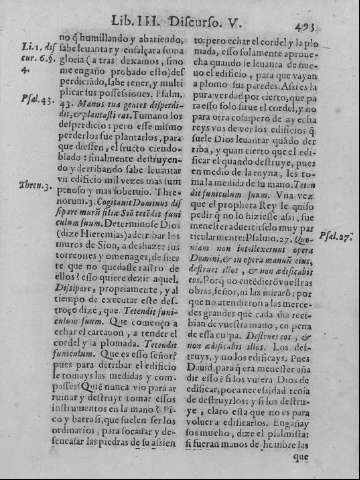 Lib. III. Discurso. V.
493
no q̃ humillando y abatiendo,
sabe leuantar y ensalçar a su ma
gloria (a tras dexamos, sino
me engaño probado esto) des
perdiciado, sabe tener, y multi
plicar sus possessiones. Psalm.
43. Manus tua gentes disperdi-
dit, & plantasti eas. Tuma no los
desperdicio: pero esse mismo
perderlos fue plantarlos, para
que diessen, el fructo ciendo-
blado: finalmente destruyen-
do y derribando sabe leuantar
vn edificio mil vezes mas sum
ptuoso y mas soberuio. Thre-
norum. 3. Cogitauit Dominus dis
sipare murũ filiæ Siõ tetẽdit funi
culum suum. Determinose Dios
(dize Hieremias) a derribar los
muros de Sion, a deshazer sus
torreones y omenages, de suer
te que no quedasse rastro de
ellos? esso quiere dezir aquel.
Dissipare, propriamente, y al
tiempo de executar este des-
troço dize, que. Tetendit funi-
culum suum. Que començo a
echar el cartauon, y a tender el
cordel y la plomada. Tetendit
funiculum. Que es esso señor?
pues para derribar el edificio
le tomays las medidas y com-
passes? Quiẽ nunca vio para ar
ruinar y destruyr tomar essos
instrumentos en la mano? Pi-
co y barras si, que suelen ser los
ordinarios, para socauar y de-
sencasar las piedras de su assien
to: pero echar el cordel y la plo
mada, esso solamente aproue-
cha quando se leuanta de nue-
uo el edificio, para que vayan
a plomo sus paredes. Assi es la
pura verdad por cierto, que pa
ra esso solo sirue el cordel, y no
para otra cosa: pero de ay echa
reys vos de ver los edificios q̃
suele Dios leuantar quãdo der
riba, y quan cierto que el edi-
ficar el quando destruye, pues
en medio de la ruyna, les to-
ma la medida de su mano. Teten
dit funiculum suum. Vna vez
que el propheta Rey le quiso
pedir q̃ no lo hiziesse assi, fue
menester aduertirselo muy par
ticularmente: Psalmo. 27. Quo-
niam non intellexerunt opera
Domini, & in opera manuũ eius,
destrues illos, & non ædificabis
eos. Porq̃ no entẽdierõ vuestras
obras, señor, ni las mirarõ: por
que no atendieron a las merce-
des grandes que cada dia reci-
bian de vuestra mano, en pena
de essa culpa. Destrues eos, &
non ædificabis illos. Los des-
truyrs, y no los edificays. Pues
Dauid, para q̃ era menester aña
dir esso? si les vuera Dios de
edificar, poca necessidad tenia
de destruyrlos: y si los destru-
ye, claro esta que no es para
voluer a edificarlos. Engañay
sos mucho, dize el psalmista:
si fueran manos de hombre las
que
Li. 1. dis
cur. 6. §.
4.
Psal. 43.
Thren. 3.
Psal. 27.